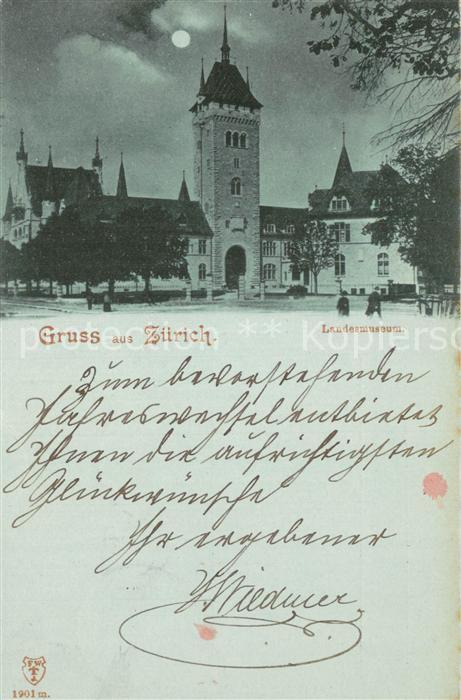 Gruss aus Zürich.
Landesmuseum.
Zum bevorstehenden
Jahreswechsel entbietet
Ihnen die aufrichtigsten
Glückwünsche
Ihr ergebener
Wiedmer
F W
1901 m.